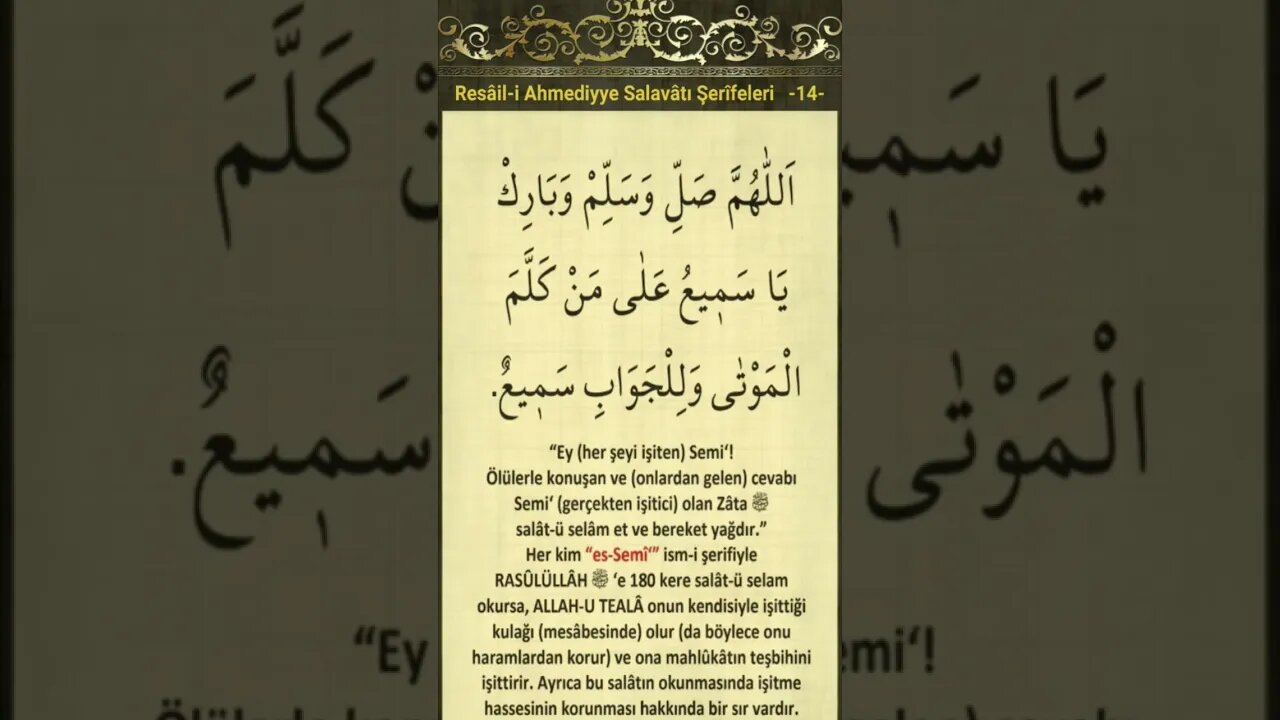 Resâil-i Ahmediyye Salavâtı Şerîfeleri -14-
اَللّٰهُمَّ صَلِّ وَسَلِّمْ وَبَارِكْ
يَا سَمٖيعُ عَلٰى مَنْ كَلَّمَ
الْمَوْتٰى وَلِلْجَوَابِ سَمٖيعٌ.
“Ey (her şeyi işiten) Semi‘!
Ölülerle konuşan ve (onlardan gelen) cevabı
Semi‘ (gerçekten işitici) olan Zâta ﷺ
salât-ü selâm et ve bereket yağdır.”
Her kim “es-Semî‘” ism-i şerifiyle
RASÛLÜLLÂH ﷺ ‘e 180 kere salât-ü selam
okursa, ALLAH-U TEALÂ onun kendisiyle işittiği
kulağı (mesâbesinde) olur (da böylece onu
haramlardan korur) ve ona mahlûkâtın teşbihini
işittirir. Ayrıca bu salâtın okunmasında işitme
hassesinin korunması hakkında bir sır vardır.